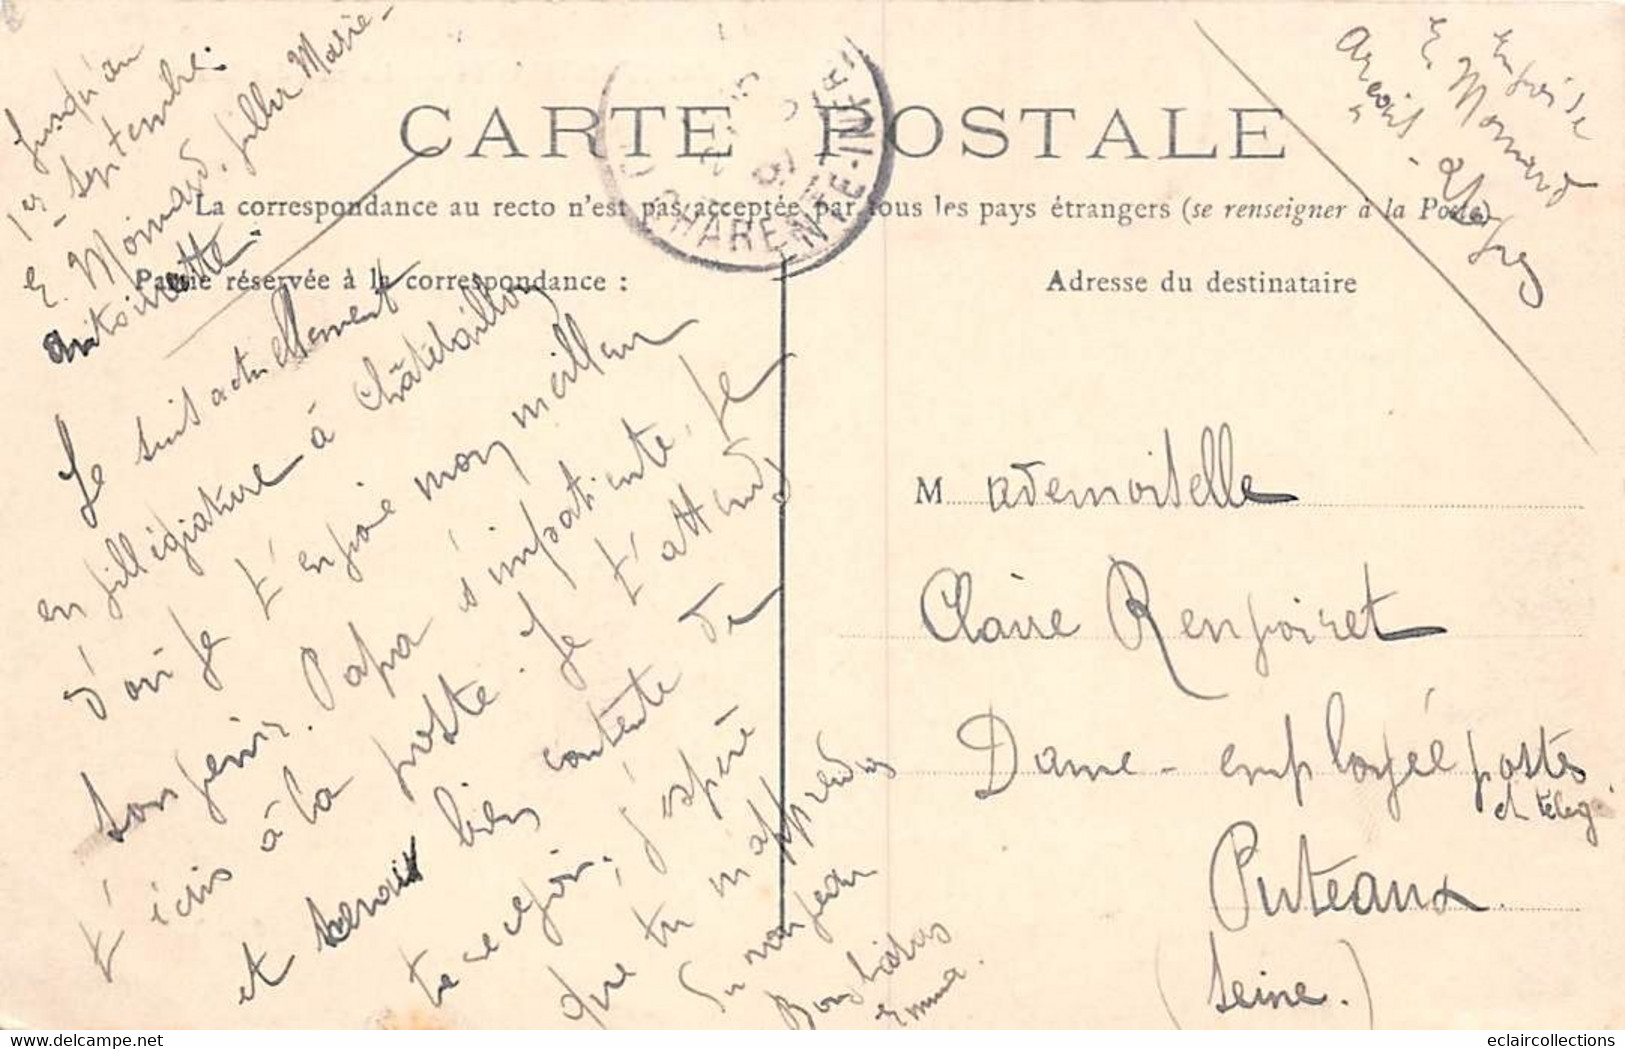 Jusqu'au
1er septembre.
E. Moinard, villa Marie-
Antoinette
CARTE POSTALE
CHARENTE-INFRE
La correspondance au recto n'est pas acceptée par tous les pays étrangers (se renseigner à la Poste)
Partie réservée à la correspondance :
Adresse du destinataire
Envoi de
E. Moinard
Je suis actuellement
en villégiature à Châtelaillon
d'où je t'envoie mon meilleur
souvenir. Papa s'impatiente. Je
t'écris à la poste. Je t'attends
et serais bien contente de
te recevoir, j'espère
que tu m'apprendras
du nouveau
Bons baisers
Emma.
Mademoiselle
Claire Renvoiret
Dame-employée postes
et télég.
Puteaux
(Seine.)
eclaircollections